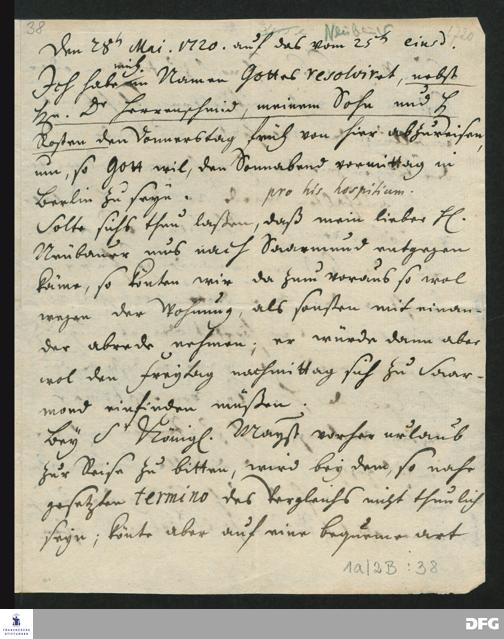 38
Neubauer
1720
Den 28t Mai. 1720. auf das vom 25t eiusd.
Ich habe mich im Namen Gottes resolviret, nebst
Hn. Dr Herrenschmid, meinem Sohn und H
Kosten den Donnerstag früh von hier abzureisen,
um, so Gott wil, den Sonnabend vormittag in
Berlin zu seyn. pro his hospitium.
Solte sichs thun laßen, daß mein lieber H.
Neubauer uns nach Saarmund entgegen
käme, so könten wir da zum voraus so wol
wegen der Wohnung, als sonsten mit einan-
der abrede nehmen; er würde dann aber
wol den Freytag nachmittag sich zu Saar-
mond einfinden müßen.
Bey Sr Königl. Mayst vorher urlaub
zur Reise zu bitten, wird bey dem, so nahe
gesetzten termino des Vergleichs nicht thunlich
seyn; könte aber auf eine bequeme art
1a/2B : 38
FRANCKESCHE STIFTUNGEN
DFG